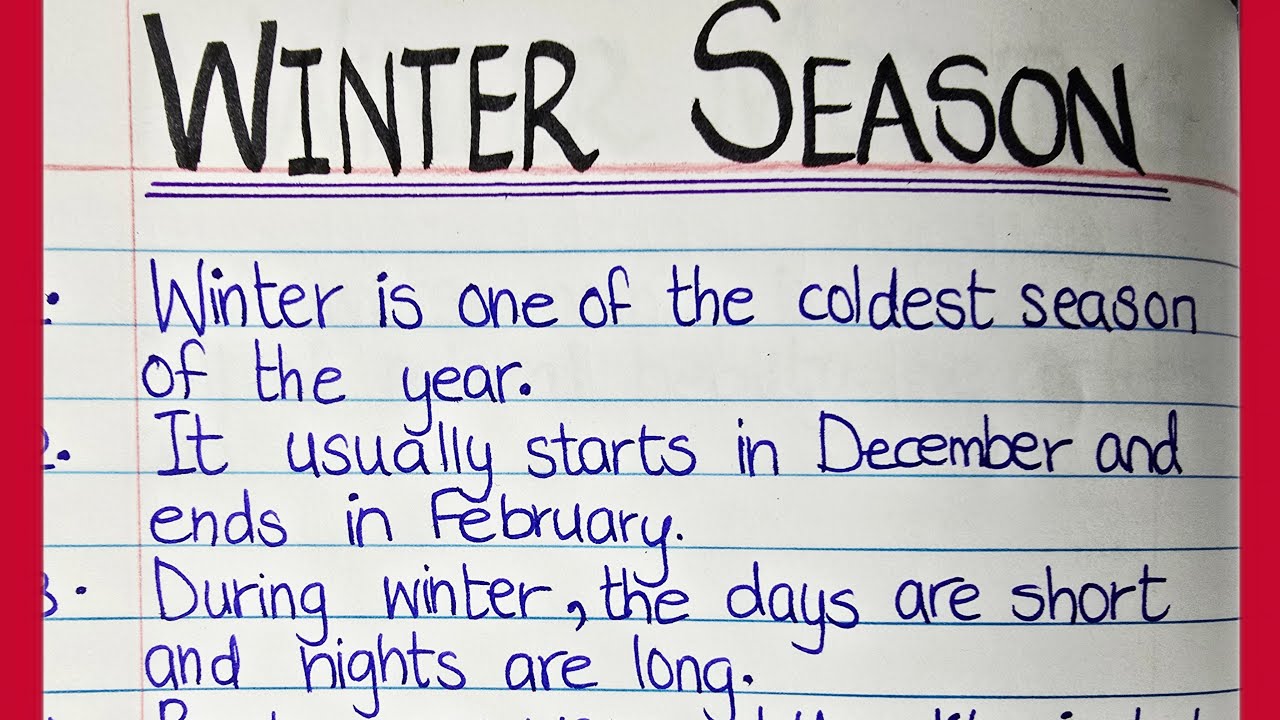 WINTER SEASON
: Winter is one of the coldest season
of the year.
2. It usually starts in December and
ends in February.
3. During winter, the days are short
and nights are long.